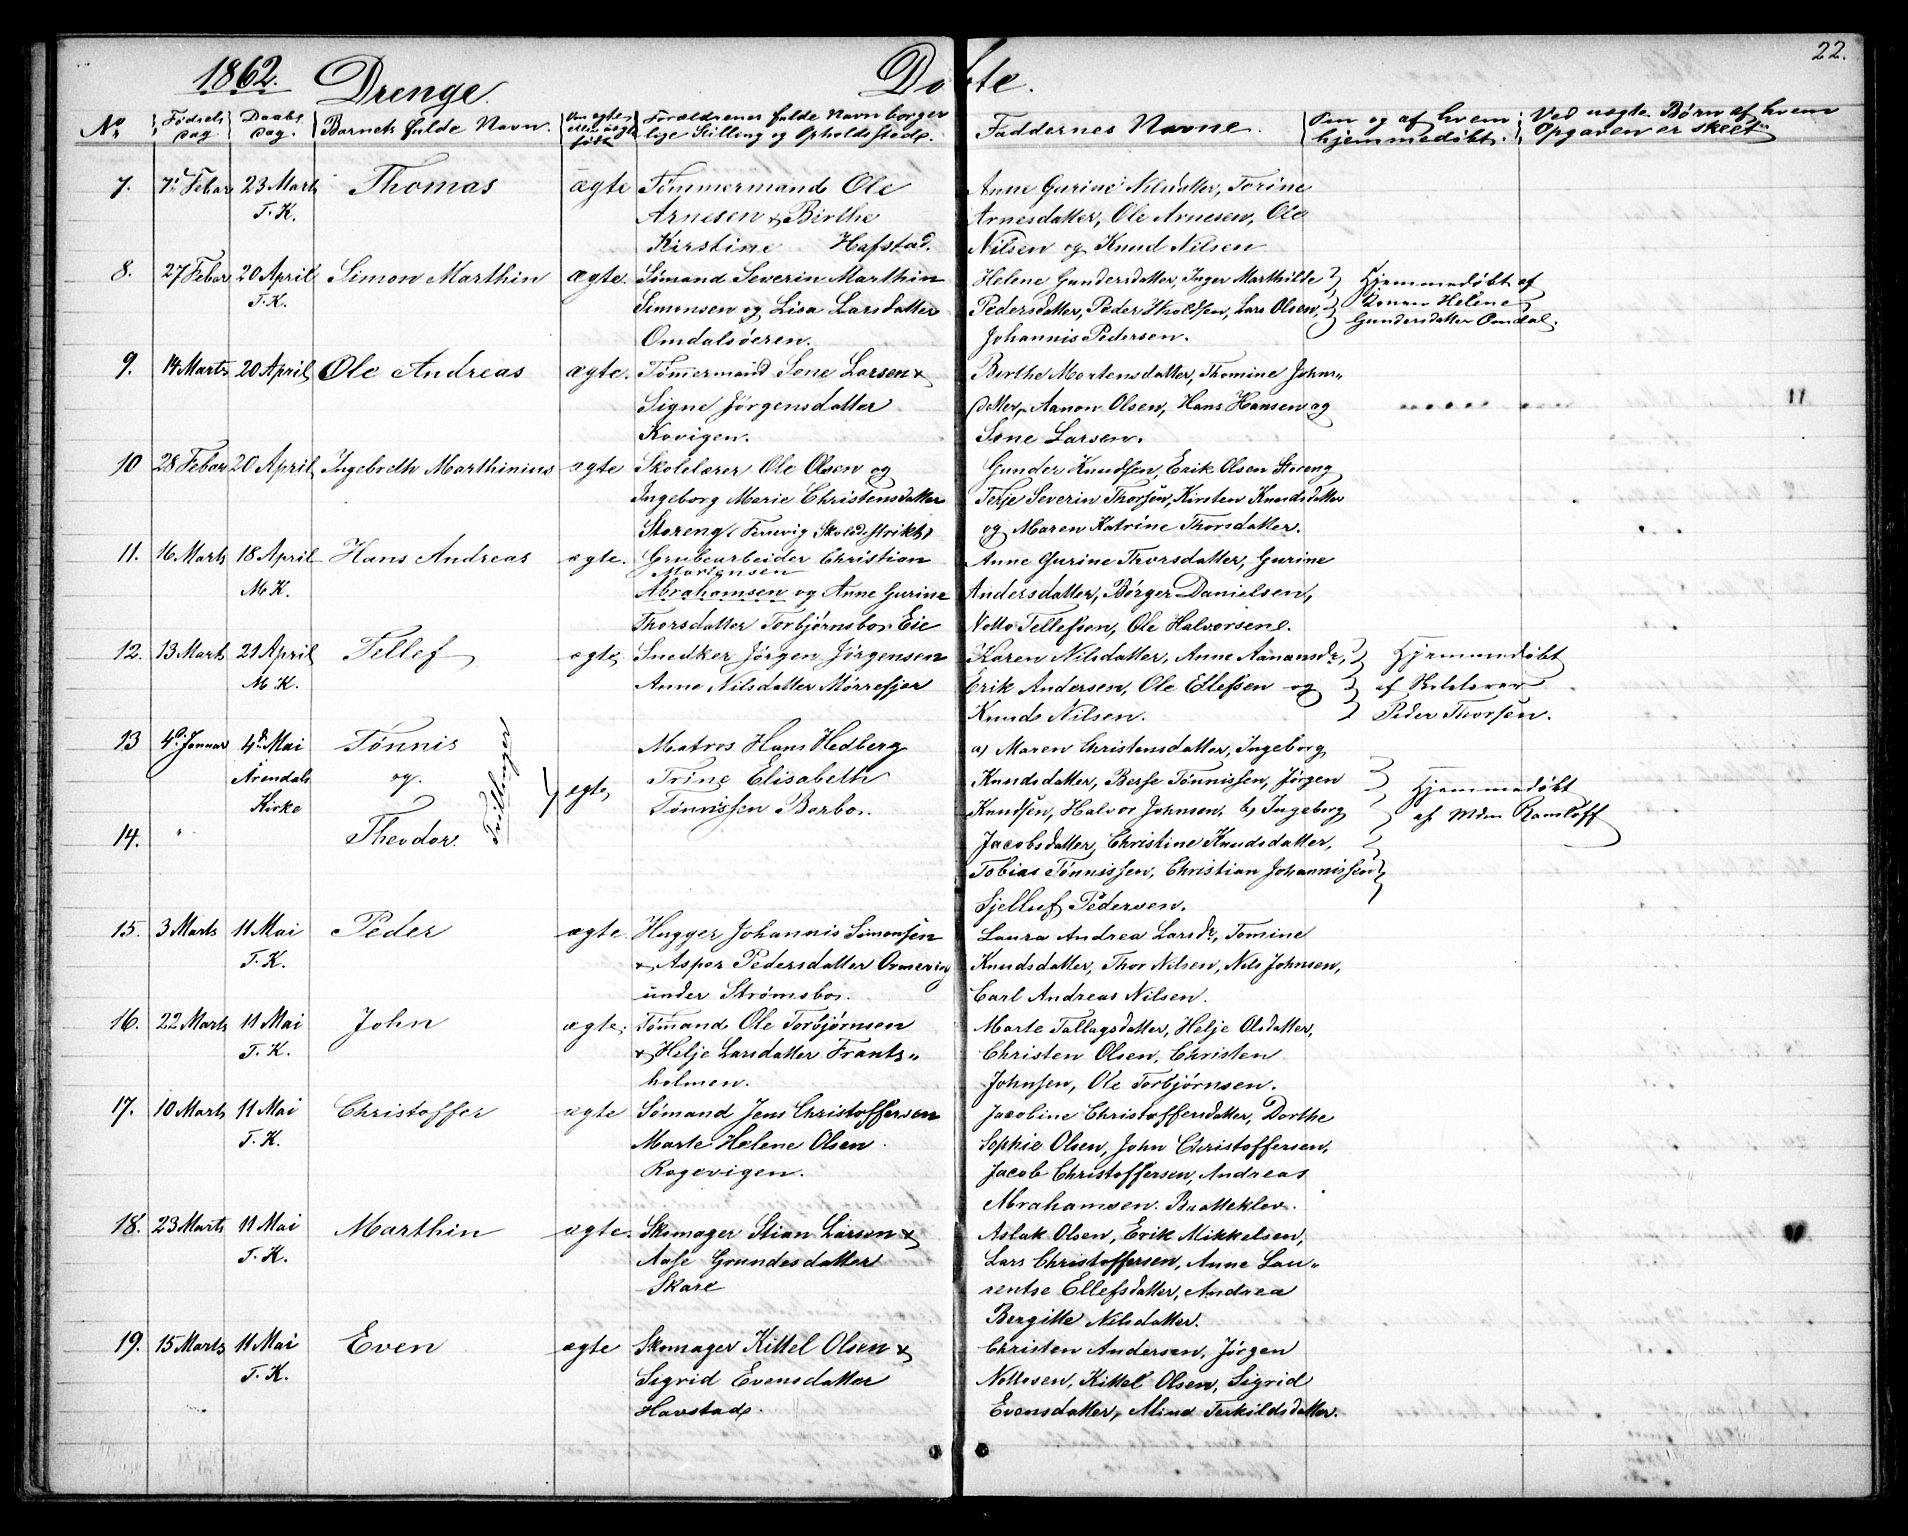 22.
1862. Drenge. Døbte.
No | Fødsels dag | Daabs dag. | Barnets fulde Navn. | Om ægte eller uægte født | Forældrenes fulde Navn borger lige Stilling og Opholdssted. | Faddernes Navne. | Om og af hvem hjemmedøbt. | Ved uægte Børn af hvem Opgaven er skeet.
7. 7de Febar 23 Marts Thomas ægte Tømmermand Ole Anne Gurine Nilsdatter, Torine
T. K. Arnesen & Birthe Arnesdatter, Ole Arnesen, Ole
Kirstine Hafstad. Nilsen og Knud Nilsen
8. 27 Febar 20 April Simon Marthin ægte. Sømand Severin Marthin Helene Gundersdatter, Inger Marthilde Hjemmedøbt af
T. K. Simonsen og Lisa Larsdatter Pedersdatter, Peder, Lars Olsen, Konen Helene
Omdalsøeren. Johannis Pedersen. Gundersdatter Omdal.
9. 14 Marts 20 April Ole Andreas ægte. Tømmermand Søne Larsen & Birthe Mortensdatter, Thomine Johns„
Signe Jørgensdatter datter, Aanon Olsen, Hans Hansen og
Kovigen. Søne Larsen.
10 28 Febar 20 April Ingebreth Marthinius ægte Skolelærer Ole Olsen og Gunder Knudsen, Erik Olsen Storeng
Ingeborg Marie Christensdatter Terje Severin Thorsen, Kirsten Knudsdatter
Storeng (Fervig Skoledistrikt) og Maren Katrine Thorsdatter.
11. 16 Marts 18 April Hans Andreas ægte. Grubearbeider Christian Anne Gurine Thorsdatter, Gurine
Mortensen
M. K. Abrahamsen og Anne Gurine Andersdatter, Børger Danielsen,
Thorsdatter Torbjørnsbo. Eie Notto Tellefsen, Ole Halvorsen.
12. 13 Marts 21 April Tellef ægte Snedker Jørgen Jørgensen Karen Nilsdatter, Anne Aanonsdr, Hjemmedøbt
M. K. Anne Nilsdatter Mørrefjær Erik Andersen, Ole Ellefsen og af Skolelærer
Knuds Nilsen. Peder Thorsen.
13 4de Januar 4de Mai Tønnis Matros Hans Hedberg a) Maren Christensdatter, Ingeborg
Arendals og Tvillinger ægte, Trine Elisabeth Knudsdatter, Berse Tønnissen, Jørgen Hjemmedøbt
Kirke Tønnissen Barbo. Knudsen, Halvor Johnsen, b) Ingeborg af Mdm Ramsloff
14. " Theodor. Jacobsdatter, Christine Knudsdatter,
Tobias Tønnissen, Christian Johannissen
Sjelluf Pedersen.
15. 3 Marts 11 Mai Peder ægte. Hugger Johannis Simonsen Laura Andrea Larsdr, Tomine
T. K. & Aspor Pedersdatter Ormevig Knudsdatter, Thor Nilsen, Nils Johnsen,
under Strømsbo. Carl Andreas Nilsen.
16. 22 Marts 11 Mai John ægte. Sømand Ole Torbjørnsen Marte Tallagsdatter, Helje Olsdatter,
T. K. & Helje Larsdatter Frants„ Christen Olsen, Christen
holmen. Johnsen, Ole Torbjørnsen.
17. 10 Marts 11 Mai Christoffer ægte Sømand Jens Christoffersen Jacobine Christoffersdatter, Dorthe
T. K. Marte Helene Olsen. Sophie Olsen, John Christoffersen,
Ragevigen. Jacob Christoffersen, Andreas
Abrahamsen. Buatteklev.
18. 23 Marts 11 Mai Marthin ægte. Skomager Stian Larsen & Aslak Olsen, Erik Mikkelsen,
T. K. Aase Gundesdatter Lars Christoffersen, Anne Lau„
Skare rentse Ellefsdatter, Andrea
Bergitte Nilsdatter.
19. 15 Marts 11 Mai Even ægte Skomager Kittel Olsen & Christen Andersen, Jørgen
T. K. Sigrid Evensdatter Nottosen, Kittel Olsen, Sigrid
Havstad. Evensdatter, Aline Terkildsdatter.